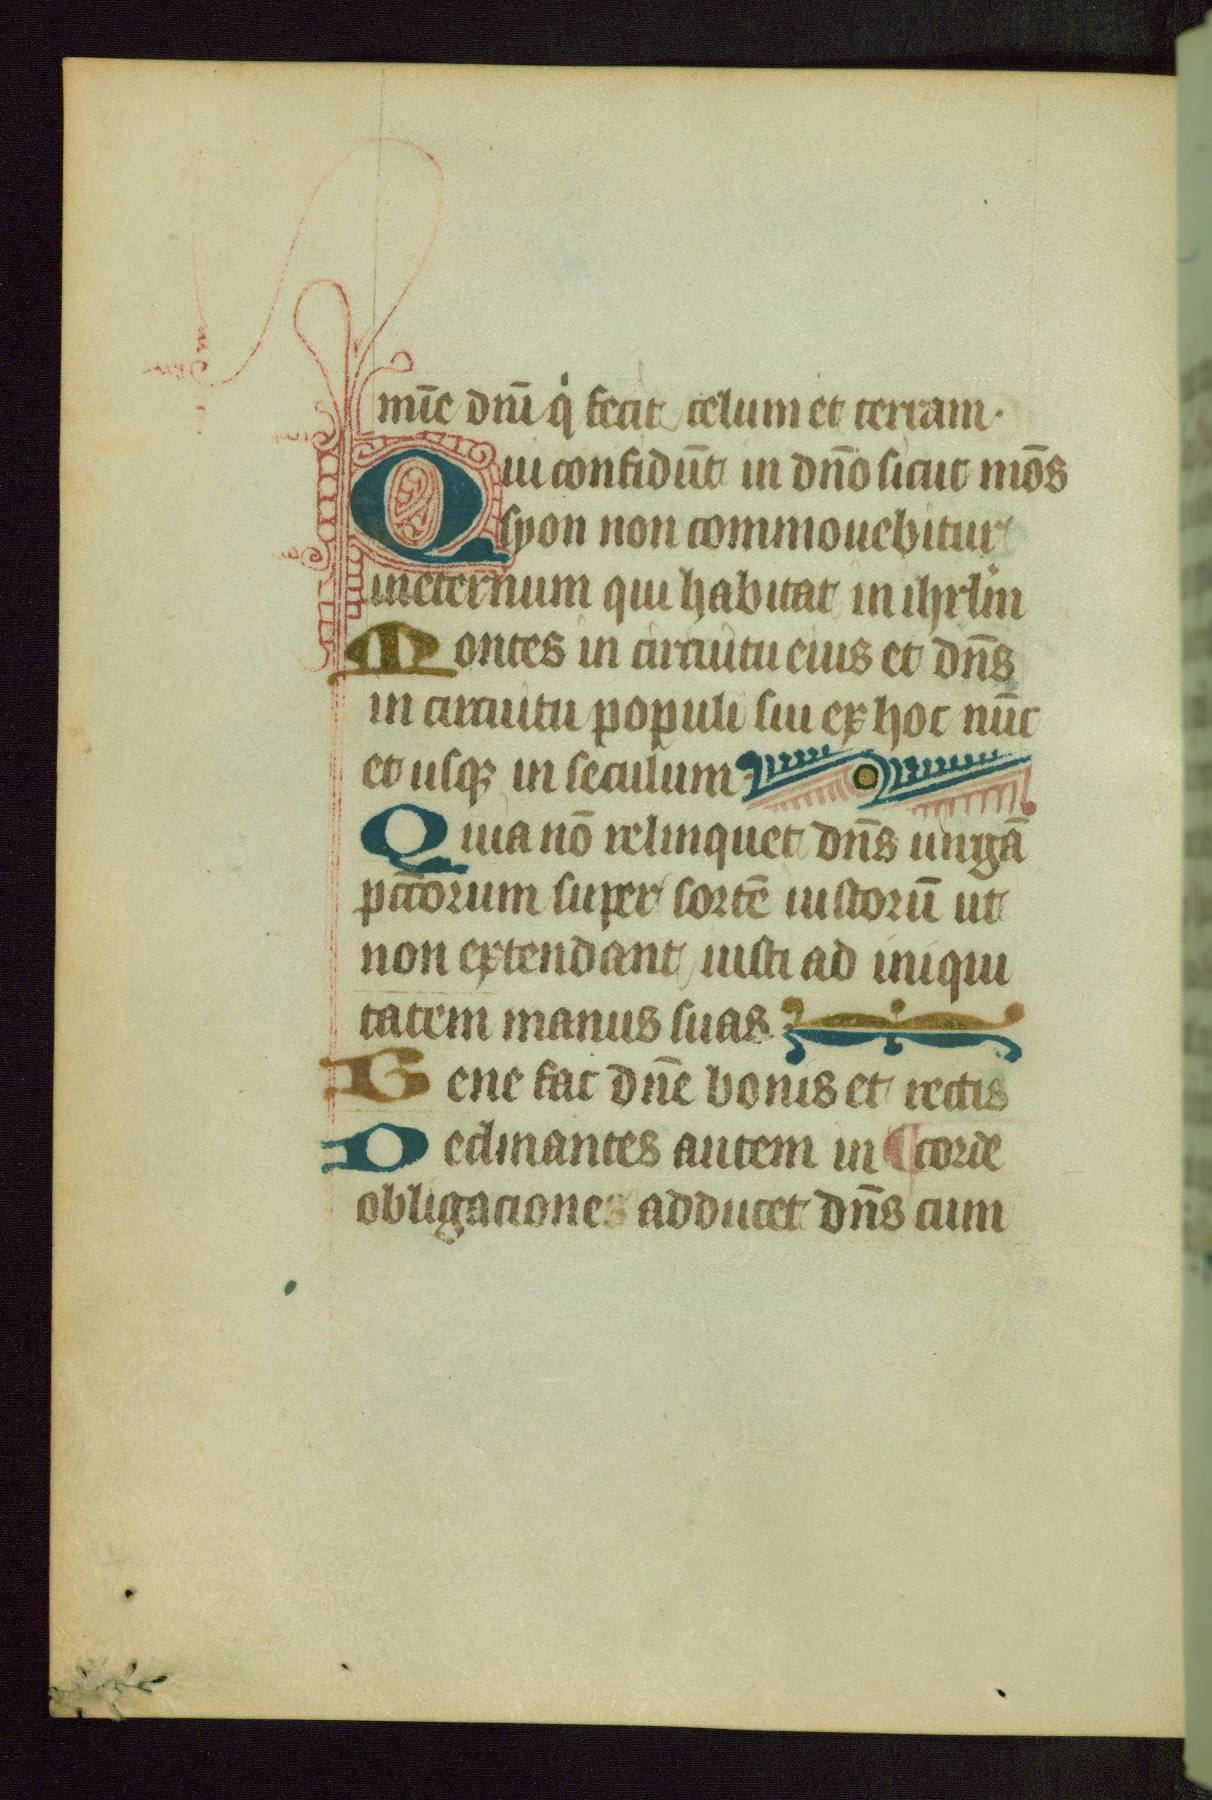 mīe dnī q̇ fecit celum et terram·
Qui confidūt in dn̄o sicut mōs
syon non commouebitur
in eternum qui habitat in ihrl̄m
Montes in circuitu eius et dn̄s
in circuitu populi sui ex hoc nūc
et usqꝫ in seculum
Quia nō relinquet dn̄s uirgā
pcc̄orum super sortē iustorū ut
non extendant iusti ad iniqui
tatem manus suas
Bene fac dn̄e bonis et rectis
Declinantes autem in ¶ corde
obligaciones adducet dn̄s cum